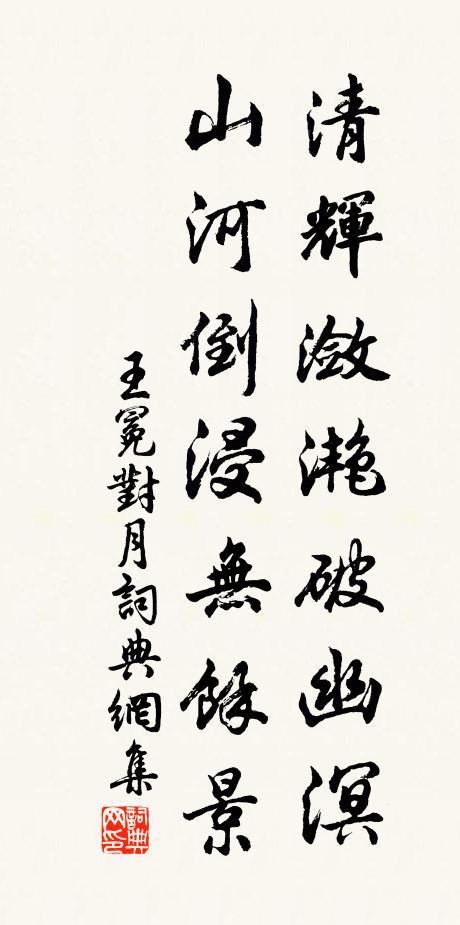 清輝瀲灩破幽溟
山河倒浸無餘景
王冕對月詞典網集
詞典網印